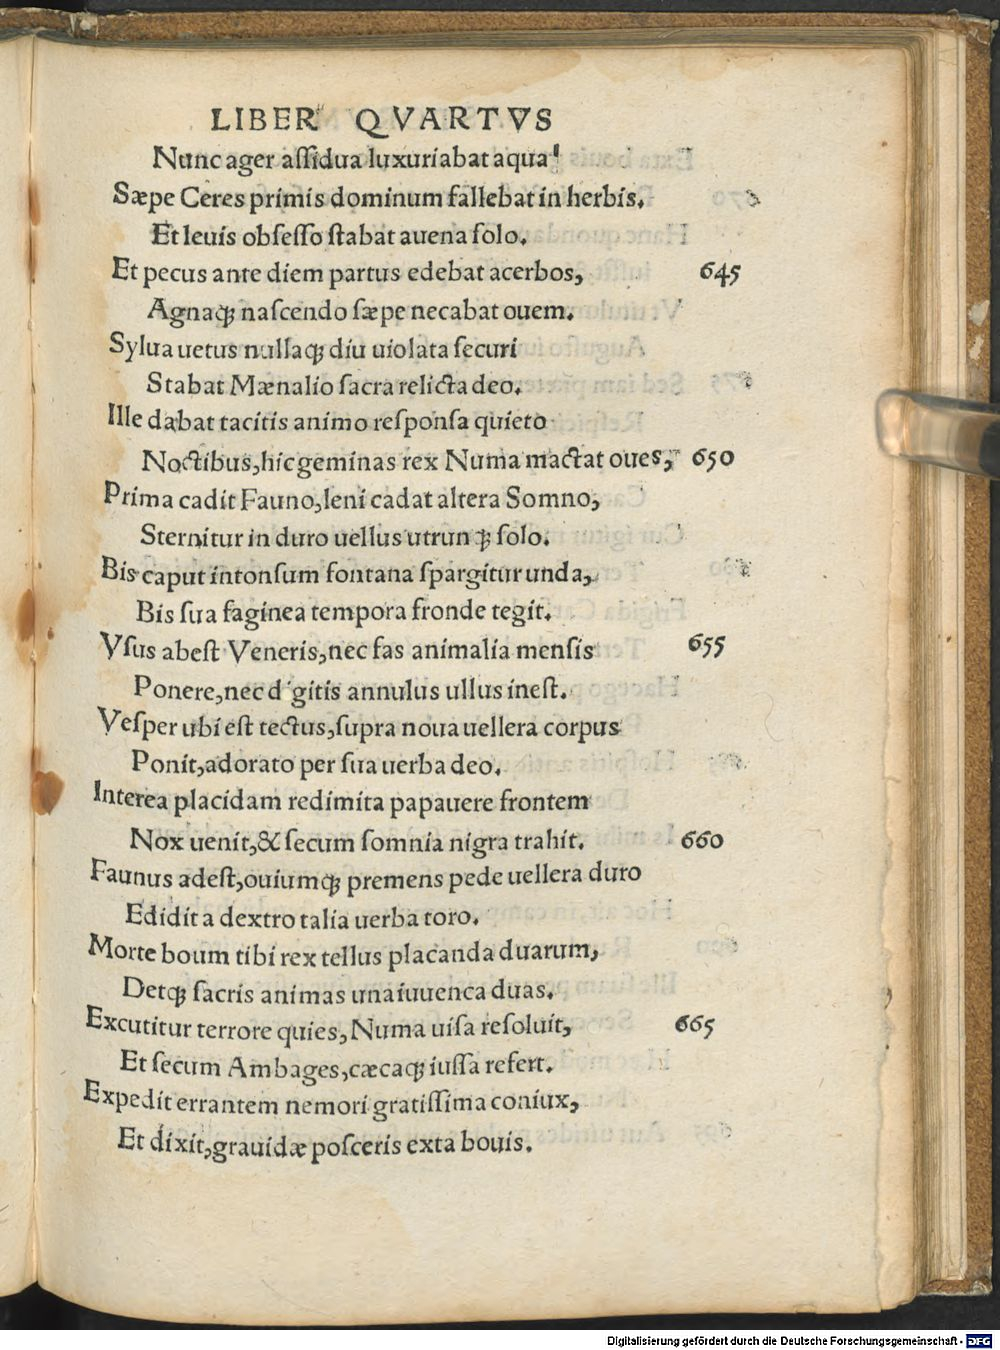 LIBER QVARTVS
Nunc ager assidua luxuriabat aqua
Sæpe Ceres primis dominum fallebat in herbis.
Et leuis obsesso stabat auena solo.
Et pecus ante diem partus edebat acerbos, 645
Agnaqꝫ nascendo sæpe necabat ouem.
Sylua uetus nullaqꝫ diu uiolata securi
Stabat Mænalio sacra relicta deo.
Ille dabat tacitis animo responsa quieto
Noctibus, hic geminas rex Numa mactat oues, 650
Prima cadit Fauno, leni cadat altera Somno,
Sternitur in duro uellus utrun qꝫ solo.
Bis caput intonsum fontana spargitur unda,
Bis sua faginea tempora fronde tegit.
Vsus abest Veneris, nec fas animalia mensis 655
Ponere, nec digitis annulus ullus inest.
Vesper ubi est tectus, supra noua uellera corpus
Ponit, adorato per sua uerba deo.
Interea placidam redimita papauere frontem
Nox uenit, & secum somnia nigra trahit. 660
Faunus adest, ouiumqꝫ premens pede uellera duro
Edidit a dextro talia uerba toro.
Morte boum tibi rex tellus placanda duarum,
Detqꝫ sacris animas una iuuenca duas.
Excutitur terrore quies, Numa uisa resoluit, 665
Et secum Ambages, cæcaqꝫ iussa refert.
Expedit errantem nemori gratissima coniux,
Et dixit, grauidæ posceris exta bouis.
Digitalisierung gefördert durch die Deutsche Forschungsgemeinschaft - DFG